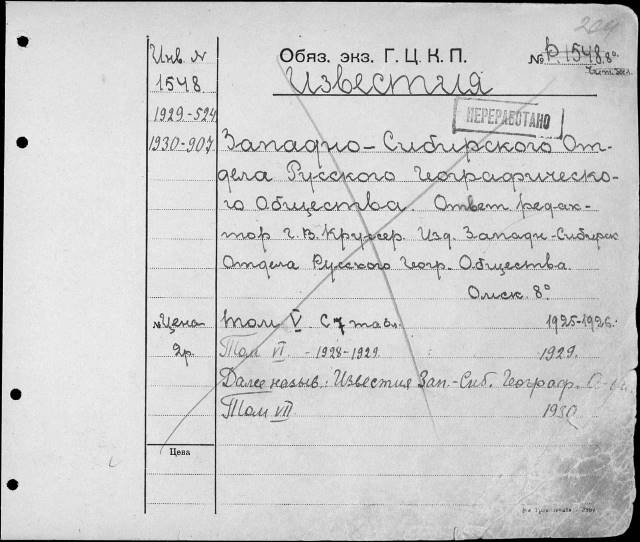 204
Инв. N
Обяз. экз. Г. Ц. К. П.
№ Б. 1548. 8°
1548
Известия
1929-524
ПЕРЕРАБОТАНО
1930-907
Западно-Сибирского От-
дела Русского Географическо-
го Общества. Ответ. редак-
тор Изд. Западн-Сибирск
Отдела Русского Геогр. Общества.
Омск. 8°
№ Цена
2р.
Том V. С 7 табл. 1925-1926.
Том VI. - 1928-1929. 1929.
Далее назыв.: Известия Зап.-Сиб. Географ. О-ва
Том VII 1930
Цена